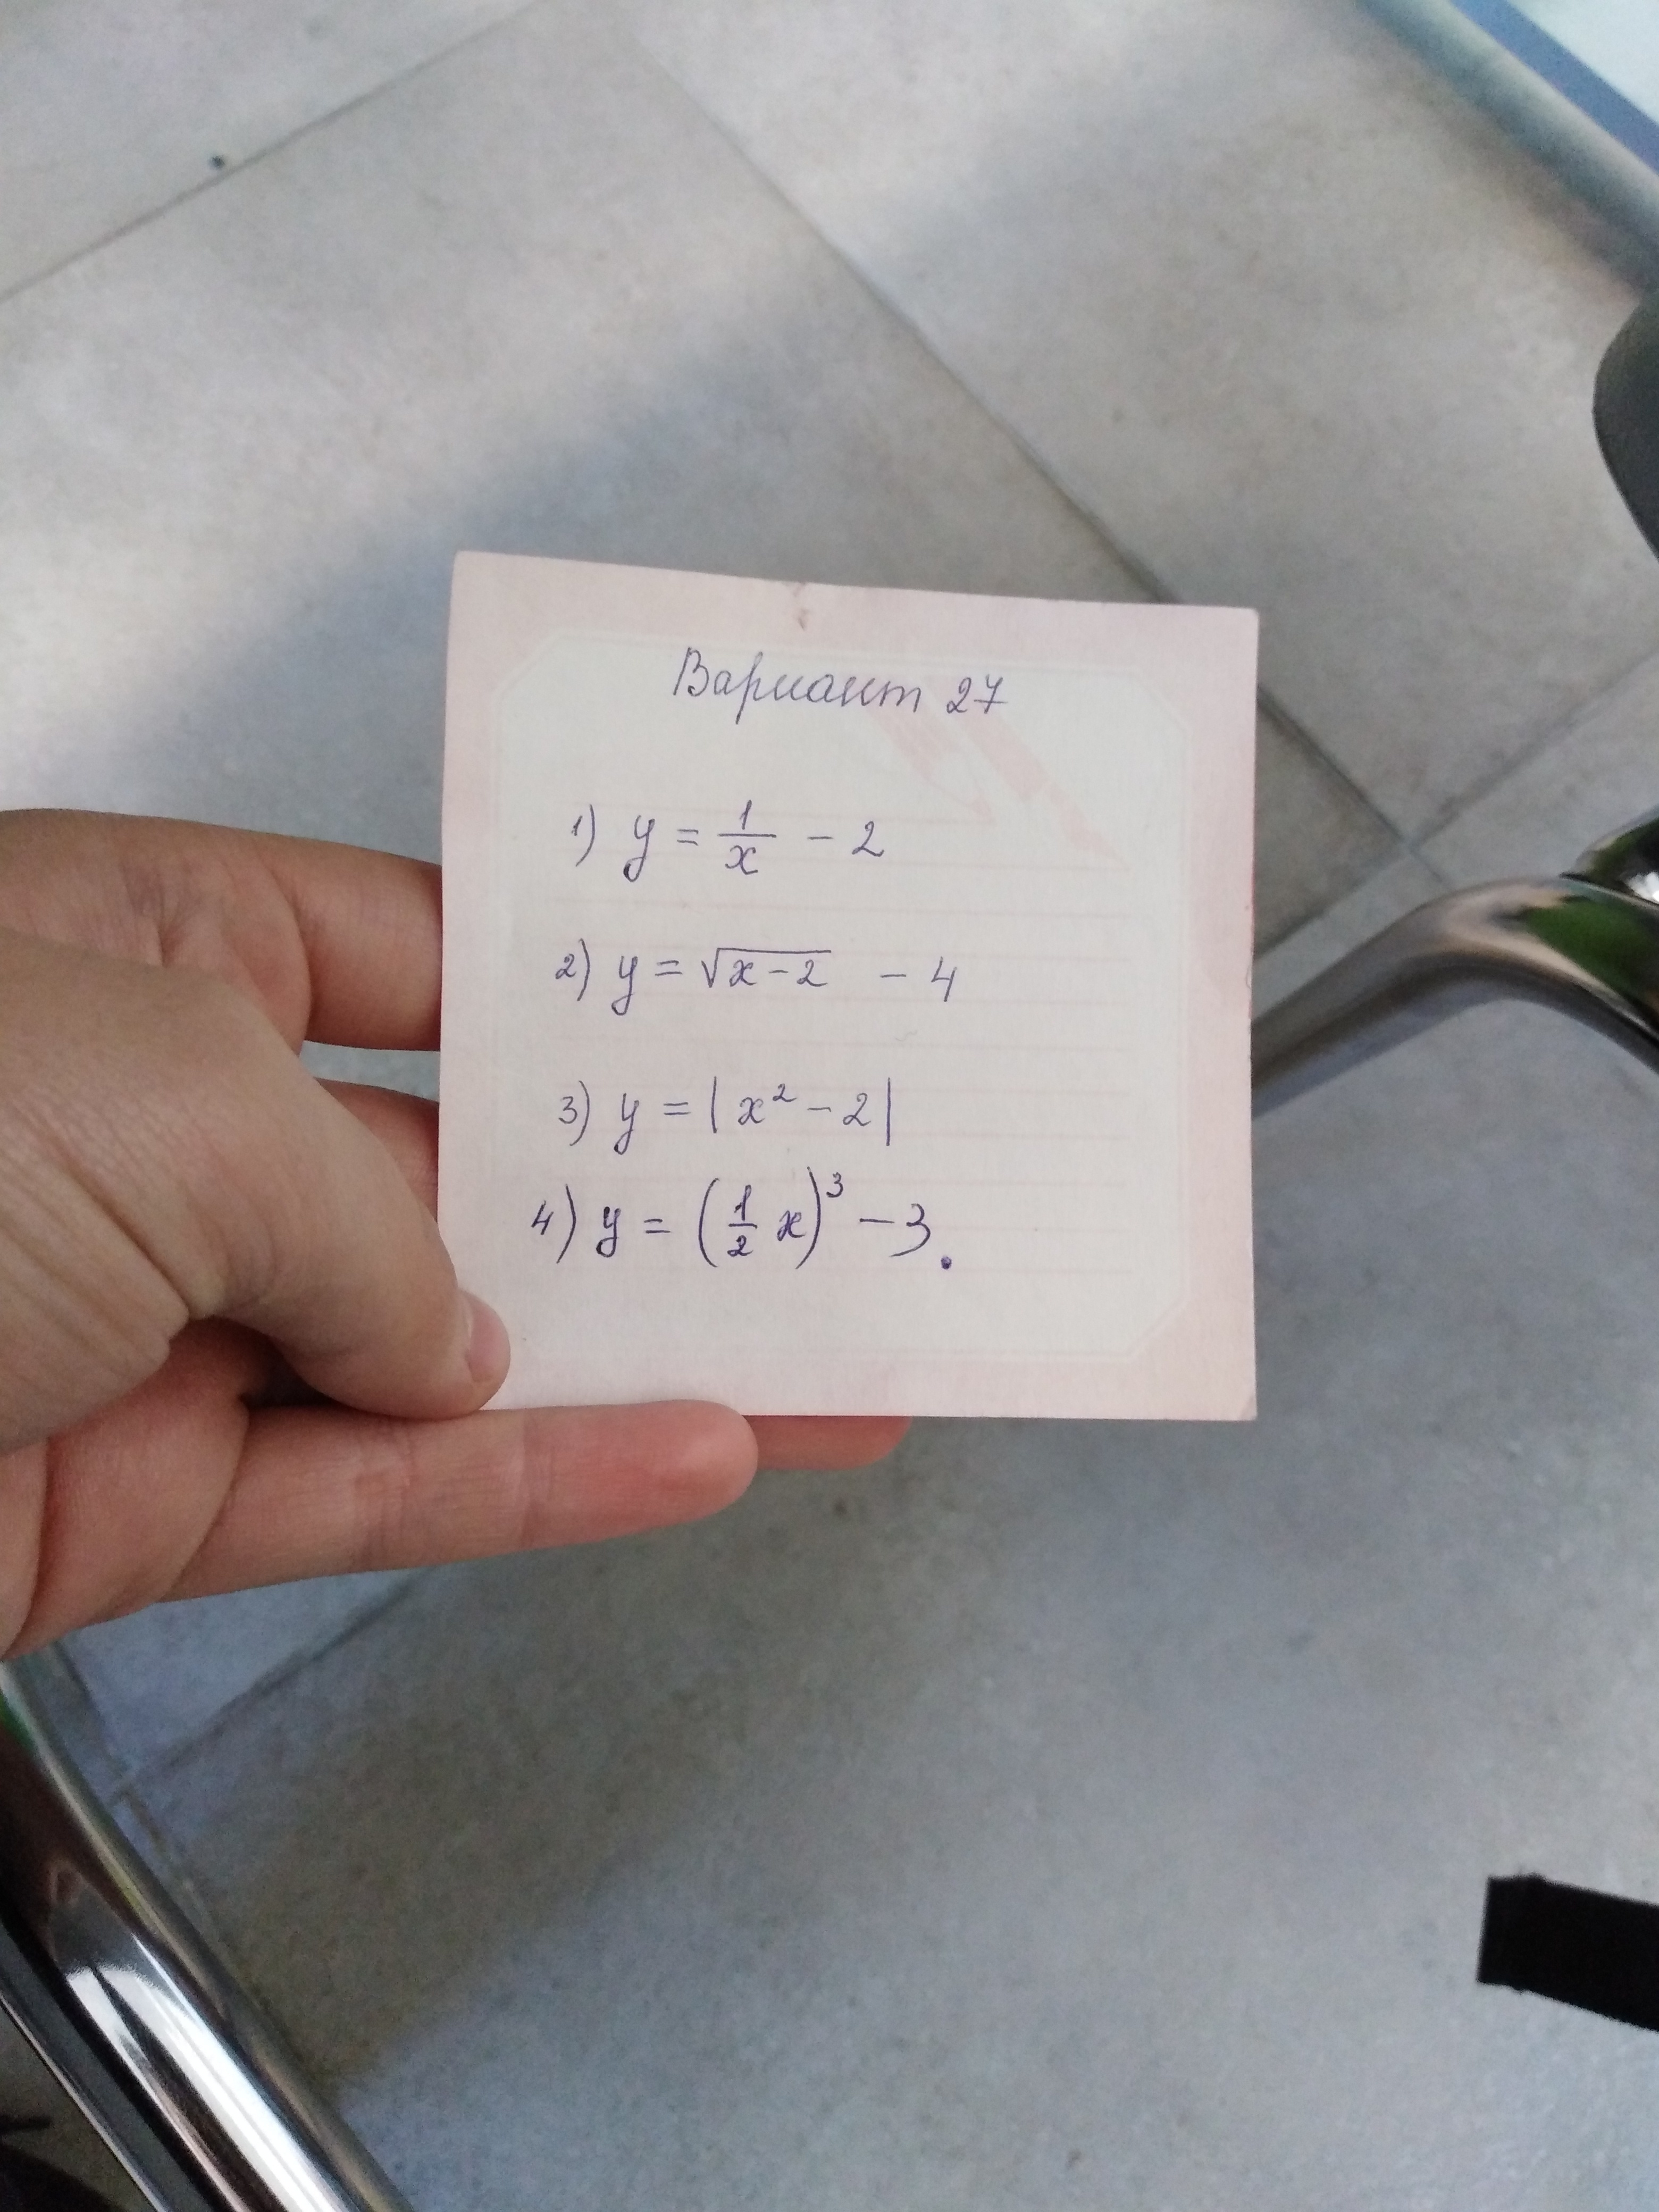 Вариант 27
1) y = 1/x - 2
2) y = √(x-2) - 4
3) y = |x² - 2|
4) y = (1/2 x)³ - 3.